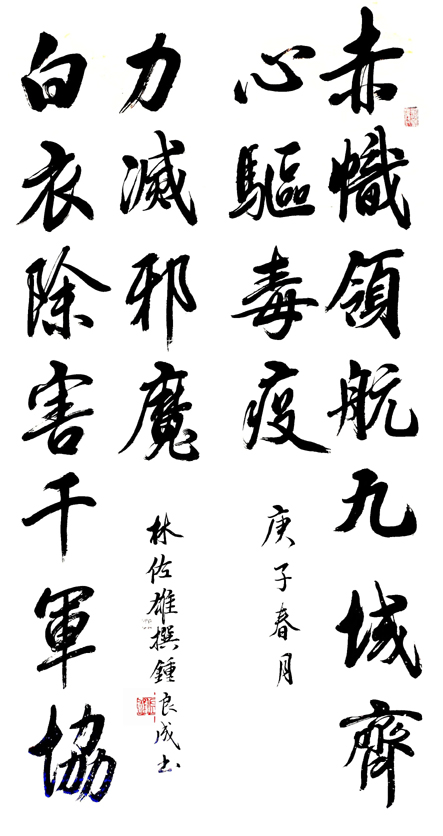 赤幟領航九域齊
心驅毒疫
庚子春月
白衣除害千軍協
力滅邪魔
林佐雄撰鍾良成书